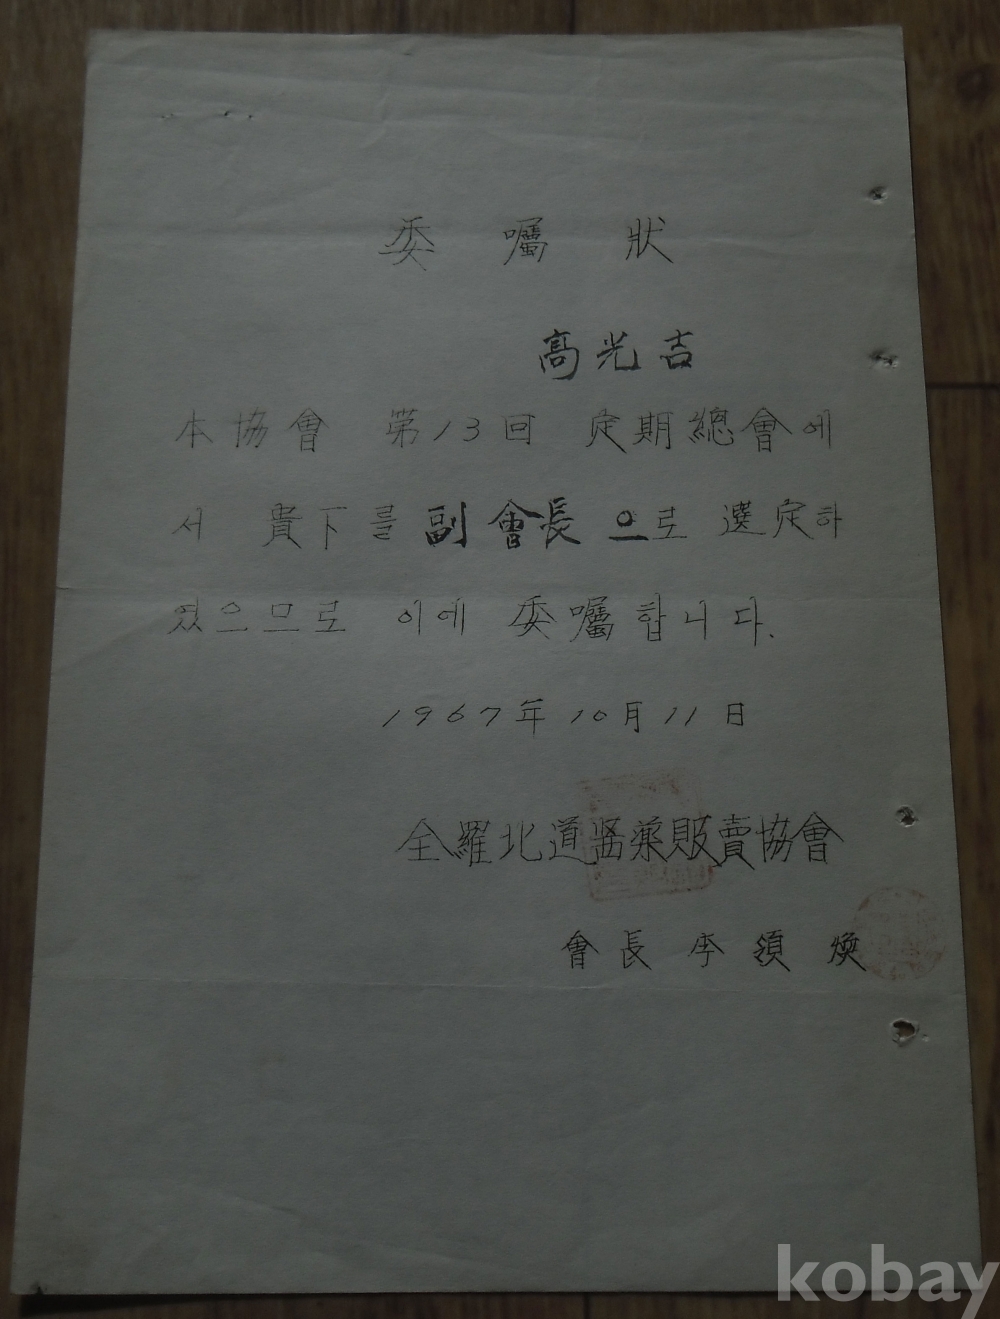 委囑狀
高光吉
本協會 第13回 定期總會에
서 貴下를 副會長으로 選定하
였으므로 이에 委囑합니다.
1967年 10月 11日
全羅北道醫藥販賣協會
會長 李須煥
kobay